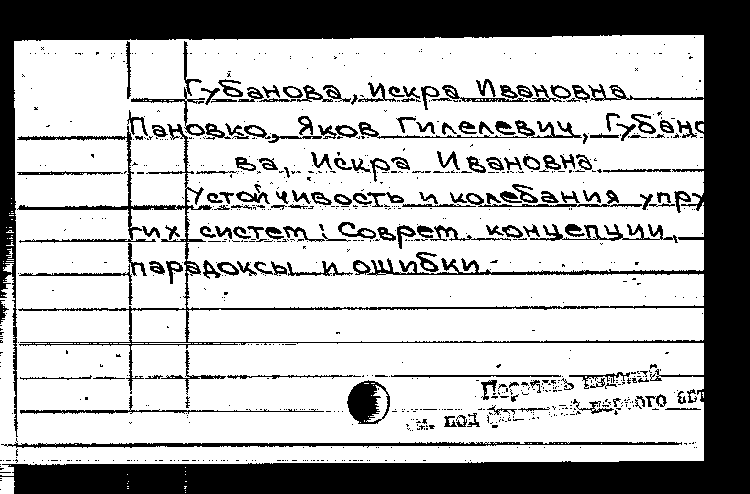 Губанова, Искра Ивановна.
Пановко, Яков Гилелевич, Губано
ва, Искра Ивановна.
Устойчивость и колебания упру
гих систем: Соврем. концепции,
парадоксы и ошибки.-
Перечень изданий
см. под фамилией первого авт